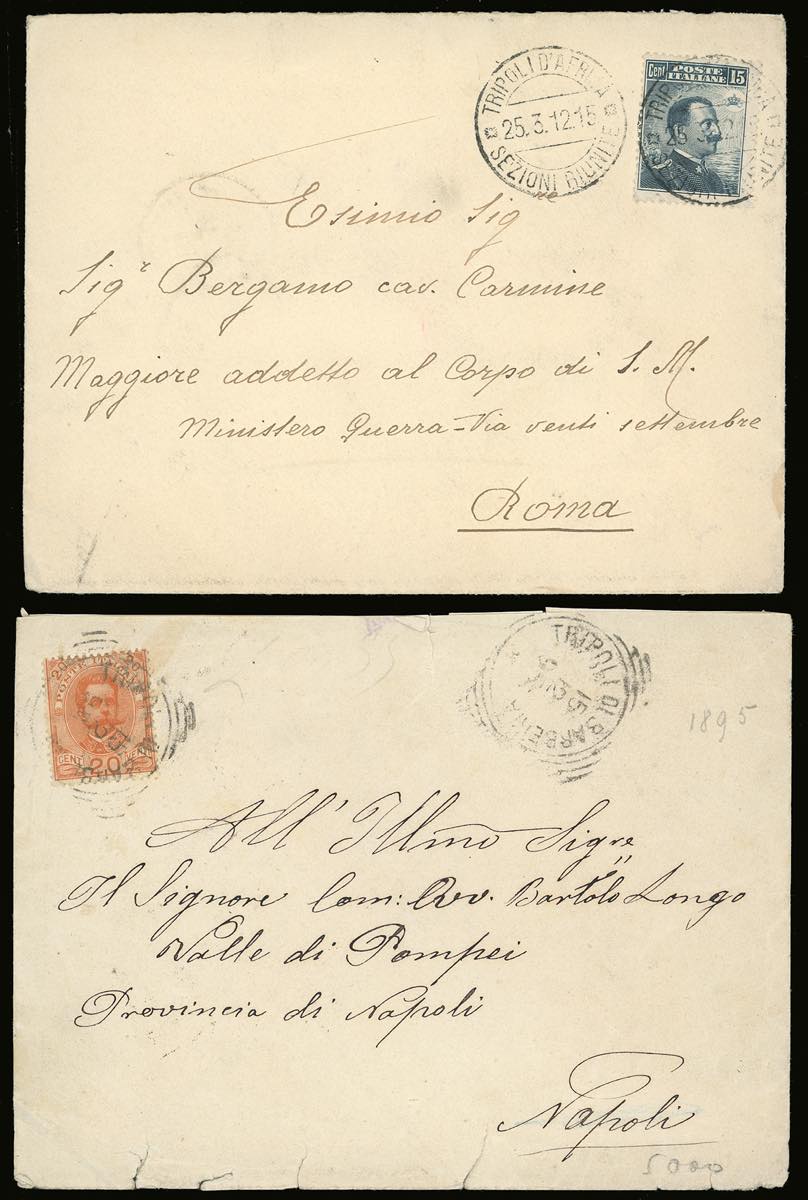 TRIPOLI D'AFRICA
25.3.12.15
SEZIONI RIUNITE
Cent POSTE ITALIANE 15
Esimio Sigre
Sigr Bergamo cav. Carmine
Maggiore addetto al Corpo di S. M.
Ministero Guerra - Via venti settembre
Roma
20 POSTE 20
CENT 20
TRIPOLI DI BARBERIA
15
1895
All' Illmo Sigre
Il Signore Com: Avv. Bartolo Longo
Valle di Pompei
Provincia di Napoli
Napoli
5000